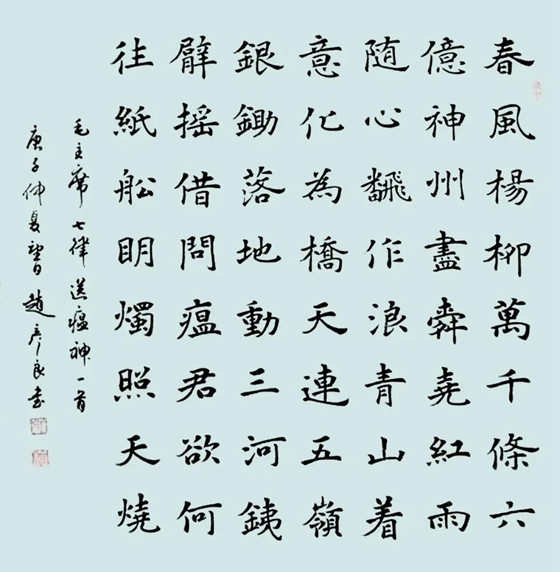 春風楊柳萬千條六
億神州盡舜堯紅雨
随心飜作浪青山着
意化為橋天連五嶺
銀鋤落地動三河銕
臂摇借問瘟君欲何
往紙舩明燭照天燒
毛主席七律送瘟神一首
庚子仲夏趙彦良書